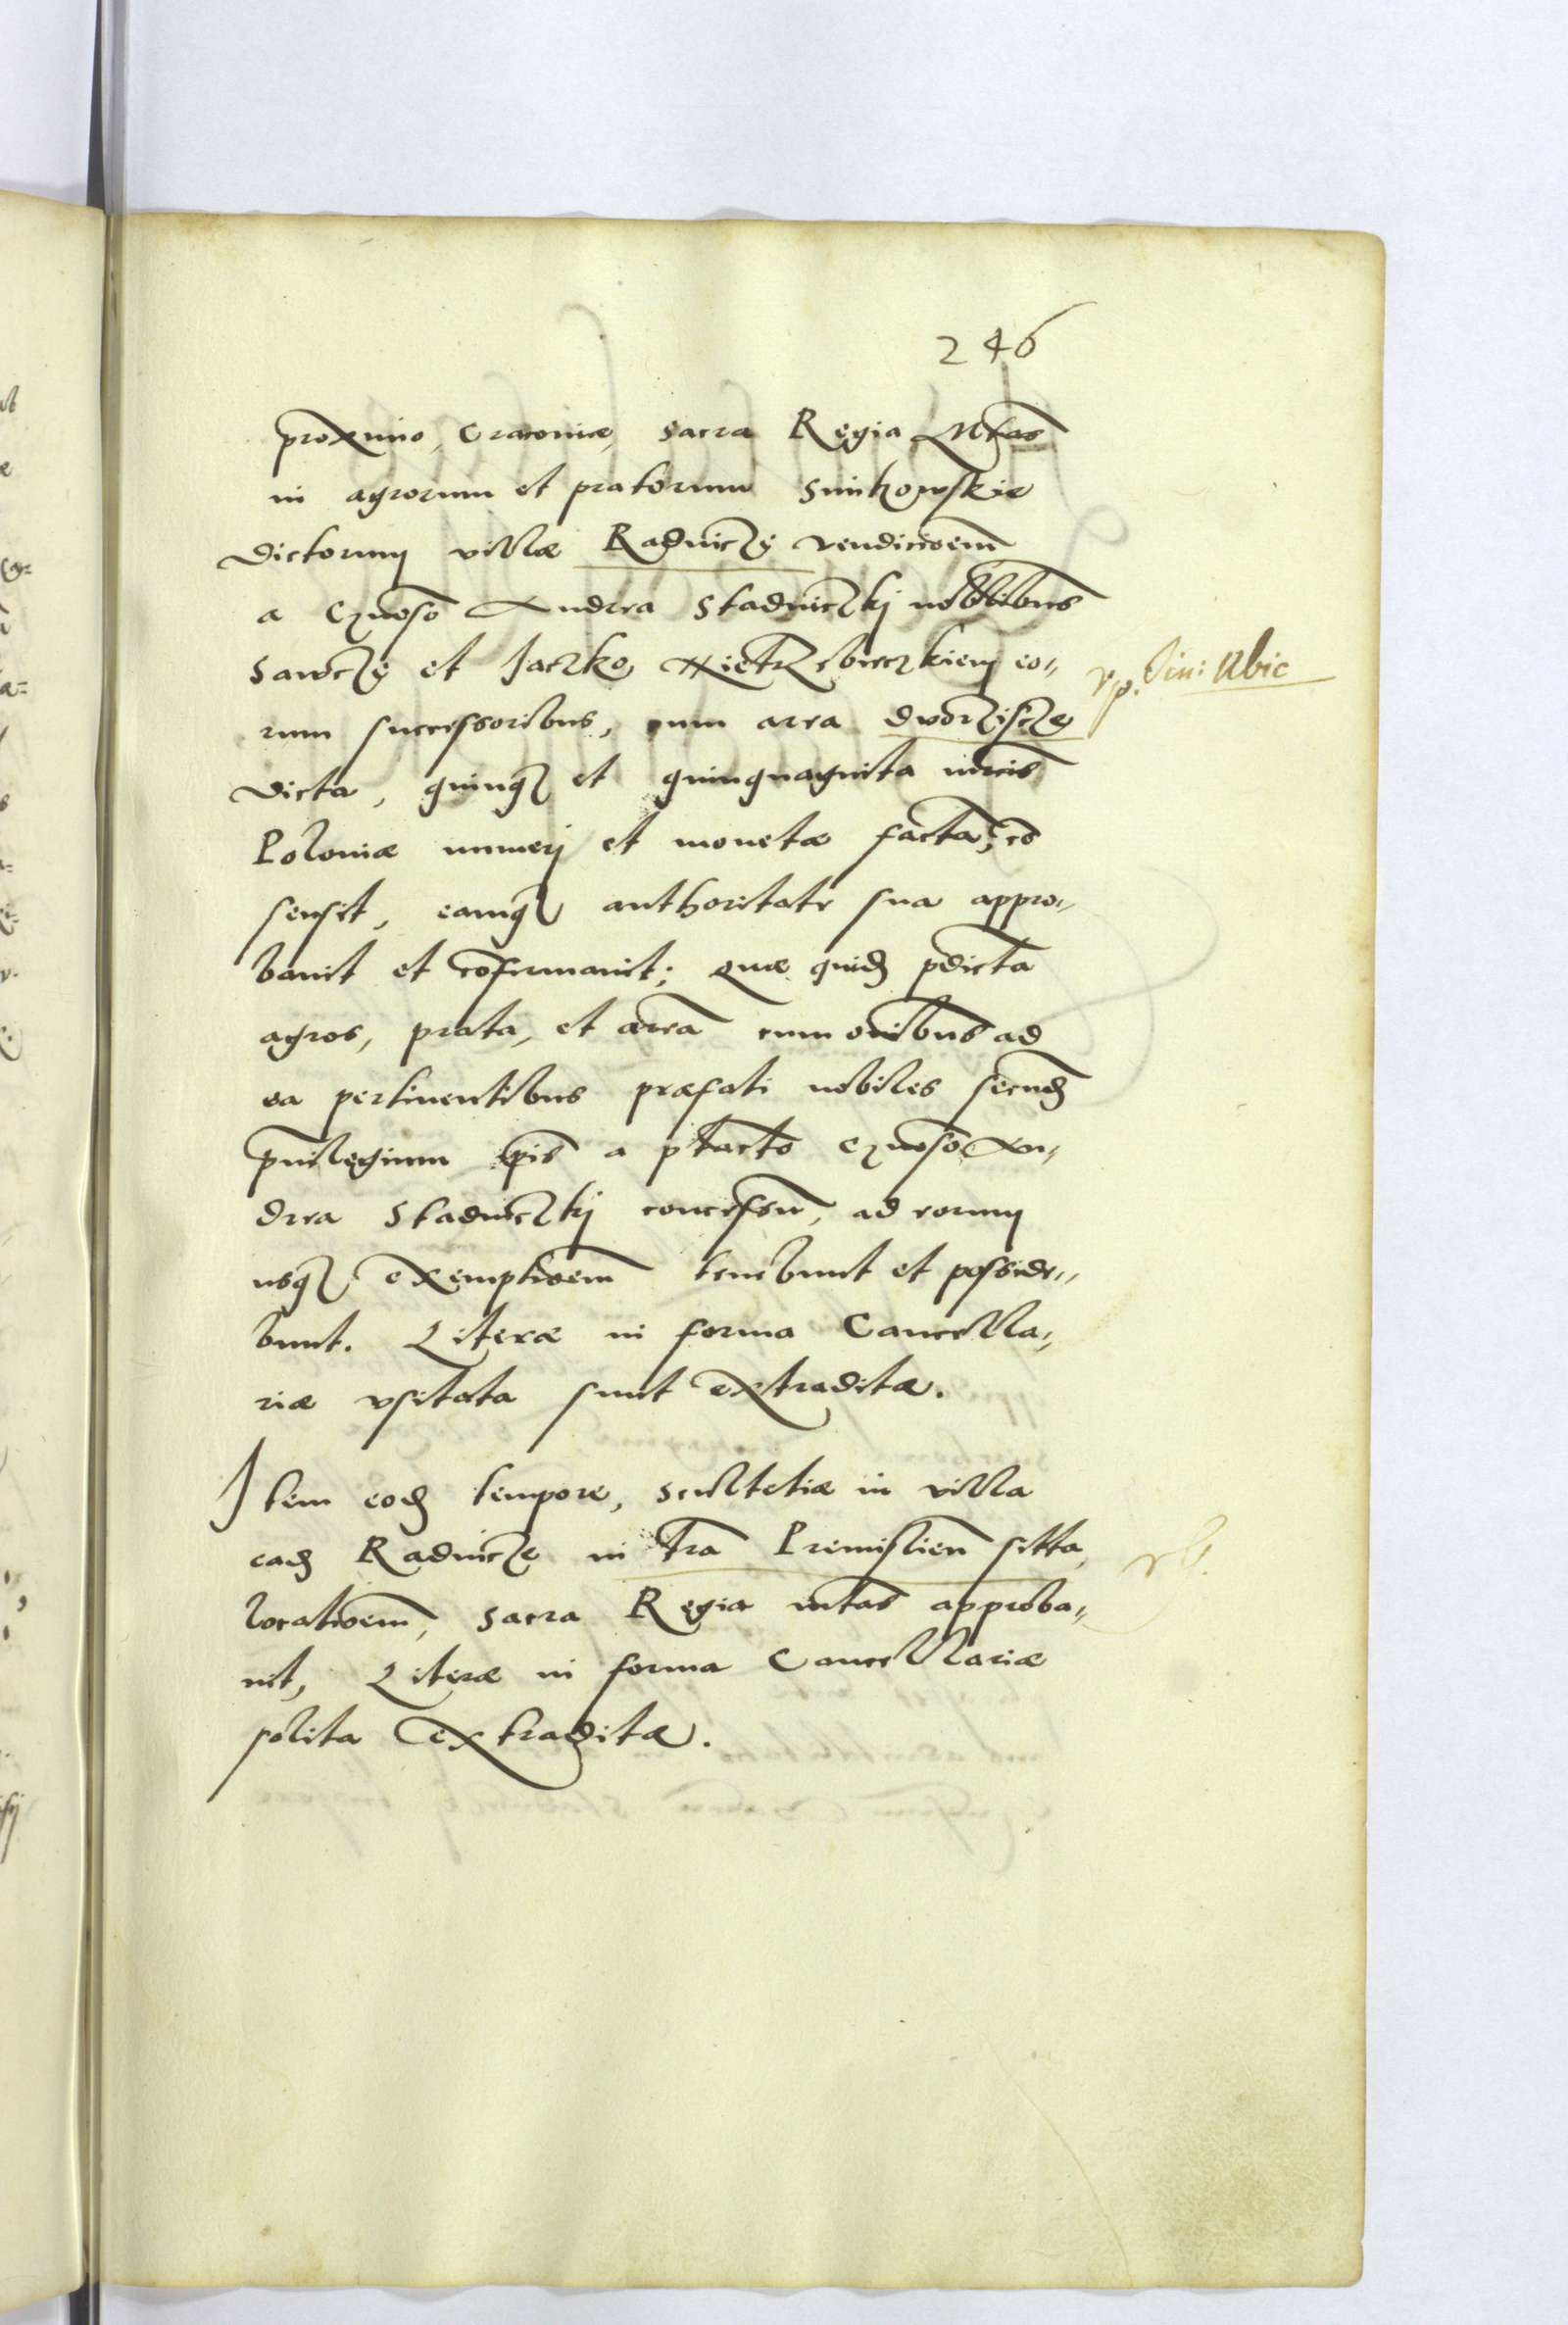 246
proximo, Cracoviæ, sacra Regia Mtas
in agrorum et pratorum Smikowskie
dictorum villæ Radnicze vendicioem
a Gnoso Andrea Stadniczkj nobilibus
Sawcze et Jaczko eo„
rum successoribus, cum area dvorziscze
dicta, quinq et quinquaginta mrcis
Poloniæ numeri et monetæ facta, cō
sensit, eamq authoritate sua appro„
bavit et cōfirmavit; quæ quid pdicta
agros, prata, et areā cum oībus ad
ea pertinentibus præfati nobiles secūd
pvilegium ipīs a ptacto Gnoso An„
drea Stadniczkj concessū, ad eorum
usq exemptioem tenebunt et posside„
bunt. Literæ in forma Cancella„
riæ vsitata sunt extraditæ.
Item eod tempore, scultetiæ in villa
ead Radnicze in tra Premislien sitta,
locatioem, sacra Regia mtas approba„
vit, Literæ in forma Cancellariæ
solita extraditæ.